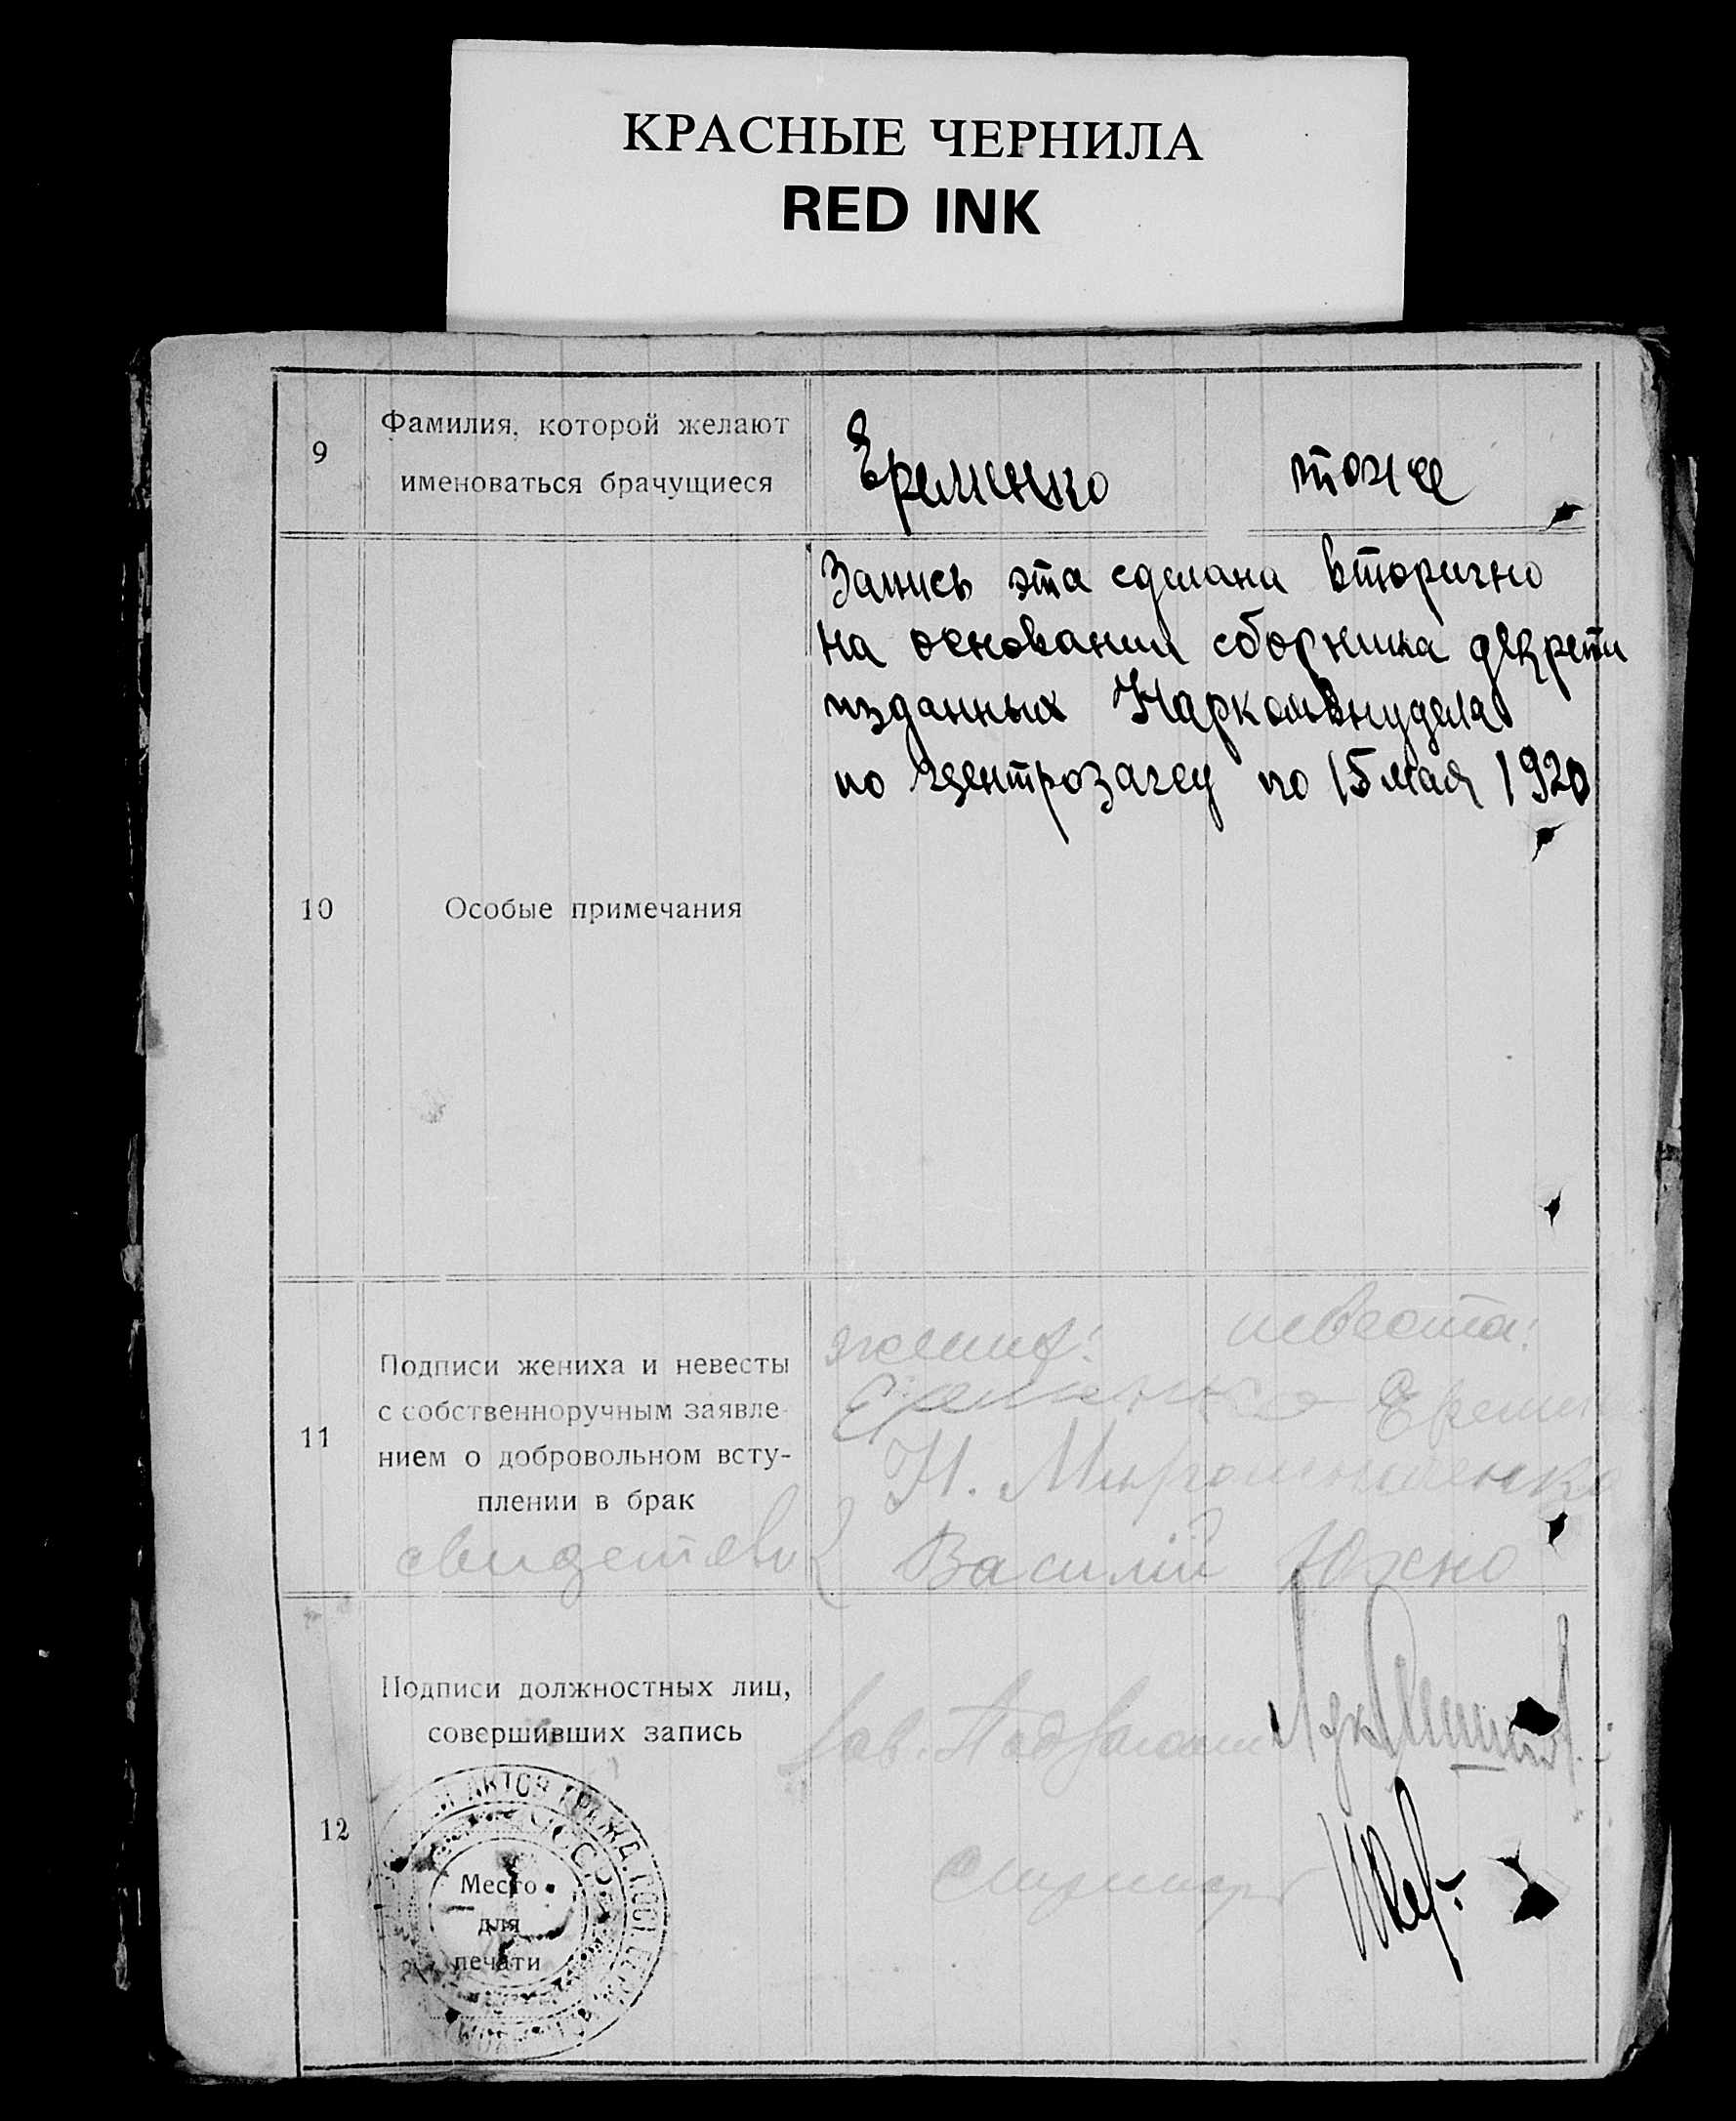 КРАСНЫЕ ЧЕРНИЛА
RED INK
9
Фамилия, которой желают
именоваться брачущиеся
Еременко тоже
Запись эта сделана вторично
на основании сборника декрети
изданных Наркомвнудела
по Центрозагсу по 15 мая 1920
10
Особые примечания
жених: невеста:
11
Подписи жениха и невесты
с собственноручным заявле-
нием о добровольном всту-
плении в брак
Еременко Еремен
Н. Мирошниченко
свидетели Василий Юхно
12
Подписи должностных лиц,
совершивших запись
Зав. Подзагсом
АКТОВ ГРАЖД. СОСТ
УССР
Место
для
печати